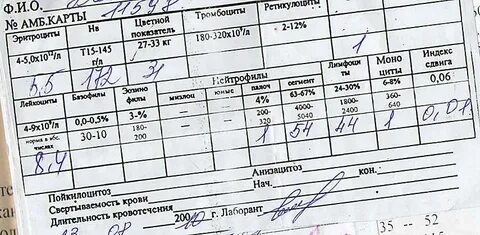 Ф.И.О.
№ АМБ.КАРТЫ 11548
Эритроциты Нв Цветной показатель Тромбоциты Ретикулоциты
4-5,0x10¹²/л Т15-145 г/л 27-33 кг 180-320x10⁹/л 2-12%
5,5 172 31
Лейкоциты Базофилы Эозино филы Нейтрофилы Лимфоци ты Моно циты Индекс сдвига
миэлоц юные палоч сегмент
4-9x10⁹/л 0,0-0,5% 3-% 4% 63-67% 24-30% 6-8% 0,06
норма в абс. числах 30-10 180-200 200 320 4000-5040 1800-2400 360-640
8,4 1 54 44 1 0,01
Пойкилоцитоз Анизацитоз кон.
Свертываемость крови Нач.
Длительность кровотечения 2010 г. Лаборант
08
35 -- 52